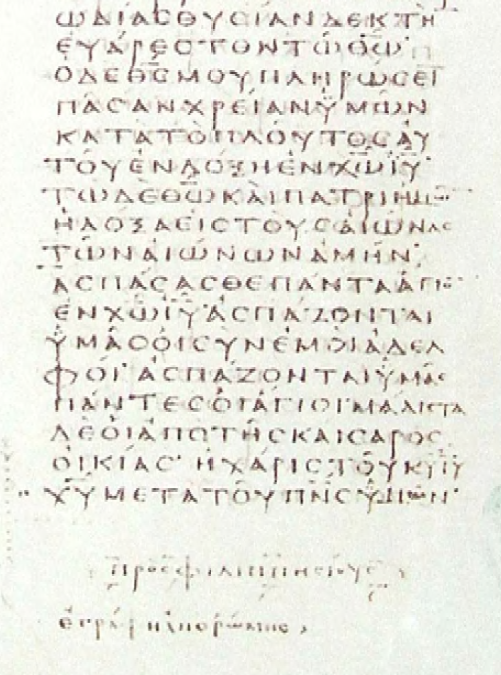 ΩΔΙΑϹΘΥϹΙΑΝΔΕΚΤΗ
ΕΥΑΡΕϹΤΟΝΤΩΘΩ
ΟΔΕΘϹΜΟΥΠΛΗΡΩϹΕΙ
ΠΑϹΑΝΧΡΕΙΑΝΫΜΩΝ
ΚΑΤΑΤΟΠΛΟΥΤΟϹΑΥ
ΤΟΥΕΝΔΟΞΗΕΝΧΩΙΥ
ΤΩΔΕΘΩΚΑΙΠΑΤΡΙΗΜΩ
ΗΔΟΞΑΕΙϹΤΟΥϹΑΙΩΝΑϹ
ΤΩΝΑΙΩΝΩΝΑΜΗΝ
ΑϹΠΑϹΑϹΘΕΠΑΝΤΑΑΓΙΟ
ΕΝΧΩΙΥΑϹΠΑΖΟΝΤΑΙ
ΫΜΑϹΟΙϹΥΝΕΜΟΙΑΔΕΛ
ΦΟΙΑϹΠΑΖΟΝΤΑΙΫΜΑϹ
ΠΑΝΤΕϹΟΙΑΓΙΟΙΜΑΛΙϹΤΑ
ΔΕΟΙΑΠΟΤΗϹΚΑΙϹΑΡΟϹ
ΟΙΚΙΑϹΗΧΑΡΙϹΤΟΥΚΥΙΥ
ΧΥΜΕΤΑΤΟΥΠΝϹΫΜΩΝ
ΠΡΟϹΦΙΛΙΠΠΗϹΙΟΥϹ
ΕΓΡΑΦΗΑΠΟΡΩΜΗϹ